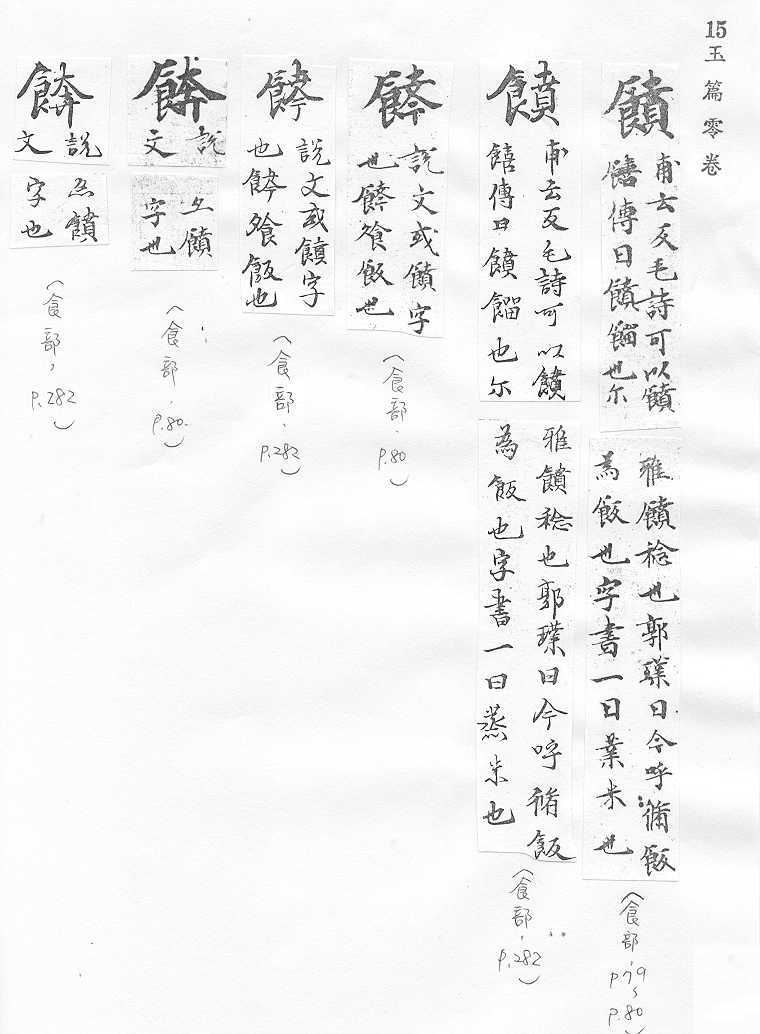 15
玉篇零卷
饙
甫云反毛詩可以饙
饎傳曰饙餾也尓
雅饙稔也郭璞曰今呼䬳飯
為饙也字書一曰蒸米也
(食部,p.79~p.80)
饙
甫云反毛詩可以饙
饎傳曰饙餾也尓
雅饙稔也郭璞曰今呼䬳飯
為飯也字書一曰蒸米也
(食部,p.282)
說文或饙字
也
飧飯也
(食部,p.80)
說文或饙字
也
飧飯也
(食部,p.282)
說文
夂饙
字也
(食部,p.80)
說文
亦饙
字也
(食部,p.282)